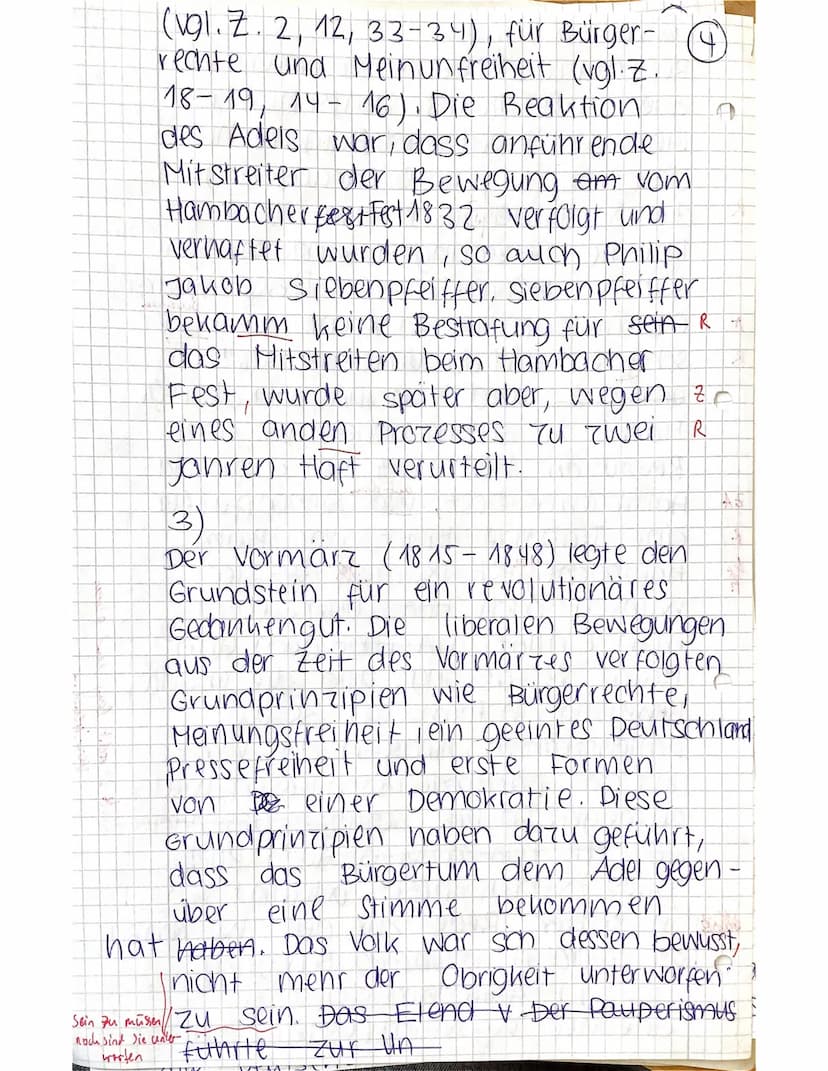 (vgl. Z. 2, 12, 33-34), für Bürger-
4
rechte und Meinunfreiheit (vgl. Z.
18-19, 14-16). Die Reaktion
des Adels war, dass anführende
Mitstreiter der Bewegung am vom
Hambacher fest Fest 1832 verfolgt und
verhaftet wurden, so auch Philip
Jakob Siebenpfeiffer. Siebenpfeiffer
bekamm keine Bestrafung für sein R
das Mitstreiten beim Hambacher
Fest, wurde später aber, wegen Z
eines anden Prozesses zu zwei R
Jahren Haft verurteilt.
3)
Der Vormärz (1815-1848) legte den
Grundstein für ein revolutionäres
Gedankengut. Die liberalen Bewegungen
aus der Zeit des Vormärzes verfolgten
Grundprinzipien wie Bürgerrechte,
Meinungsfreiheit, ein geeintes Deutschland
Pressefreiheit und erste Formen
von einer Demokratie. Diese
Grundprinzipien haben dazu geführt,
dass das Bürgertum dem Adel gegen-
über eine Stimme bekommen
hat haben. Das Volk war sich dessen bewusst,
nicht mehr der Obrigkeit unterworfen
zu sein. Das Elend v Der Pauperismus
führte zur Un
sein zu müsen
noch sind sie unter
worfen